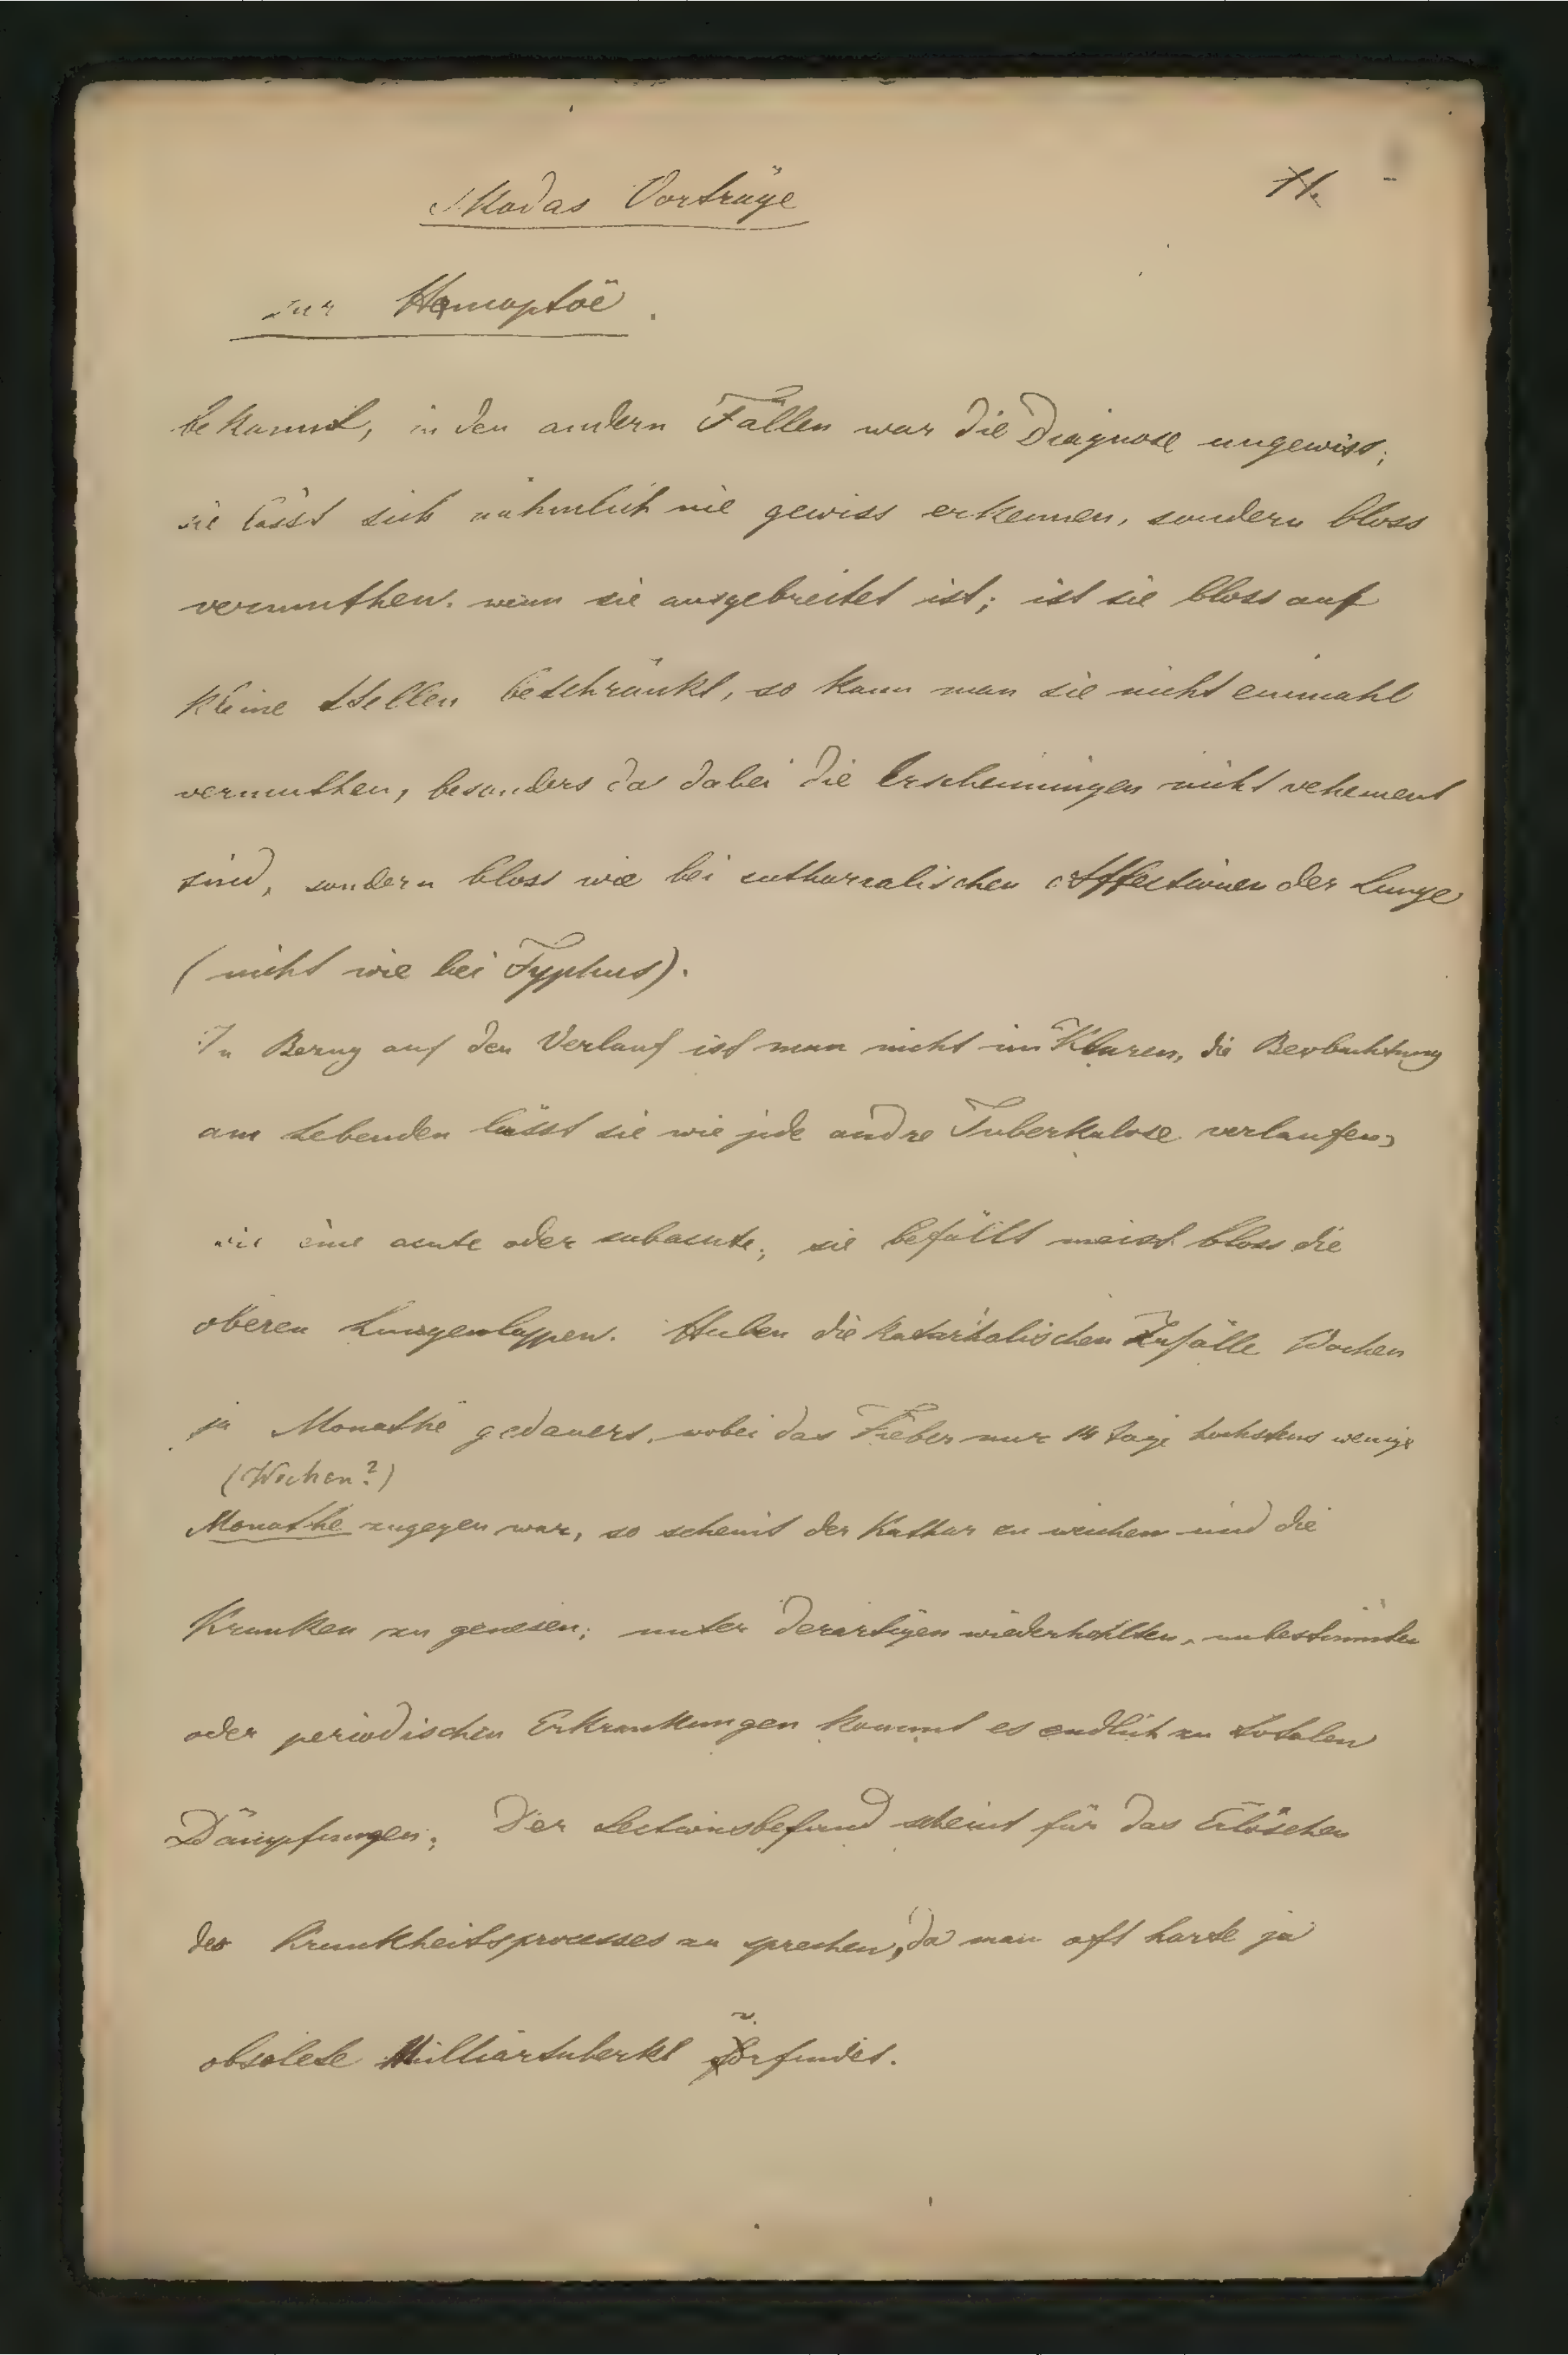 Skodas Vorträge
11.
zur Hämoptoë.
bekannt, in den andern Fällen war die Diagnose ungewiss;
sie lässt sich nähmlich nie gewiss erkennen, sondern bloss
vermuthen. wenn sie ausgebreitet ist; ist sie bloss auf
kleine Stellen beschränkt, so kann man sie nicht einmahl
vermuthen, besonders da dabei die Erscheinungen nicht vehement
sind, sondern bloss wie bei catharralischen Affectionen der Lunge
(nicht wie bei Typhus).
In Bezug auf den Verlauf ist man nicht im Klaren, die Beobachtung
am Lebenden lässt sie wie jede andre Tuberkulose verlaufen,
wie eine acute oder subacute; sie befällt meist bloss die
oberen Lungenlappen. Haben die katarrhalischen Zufälle Wochen
ja Monathe gedauert, wobei das Fieber nur 14 Tage höchstens wenige
(Wochen?)
Monathe zugegen war, so scheint der Kathar zu weichen und die
Kranken zu genesen; unter derartigen wiederhohlten, unbestimmten
oder periodischen Erkrankungen kommt es endlich zu totalen
Dämpfungen; Der Sectionsbefund scheint für das Erlöschen
des Krankheitsprocesses zu sprechen, da man oft harte ja
obsolete Milliartuberkl vorfindet.